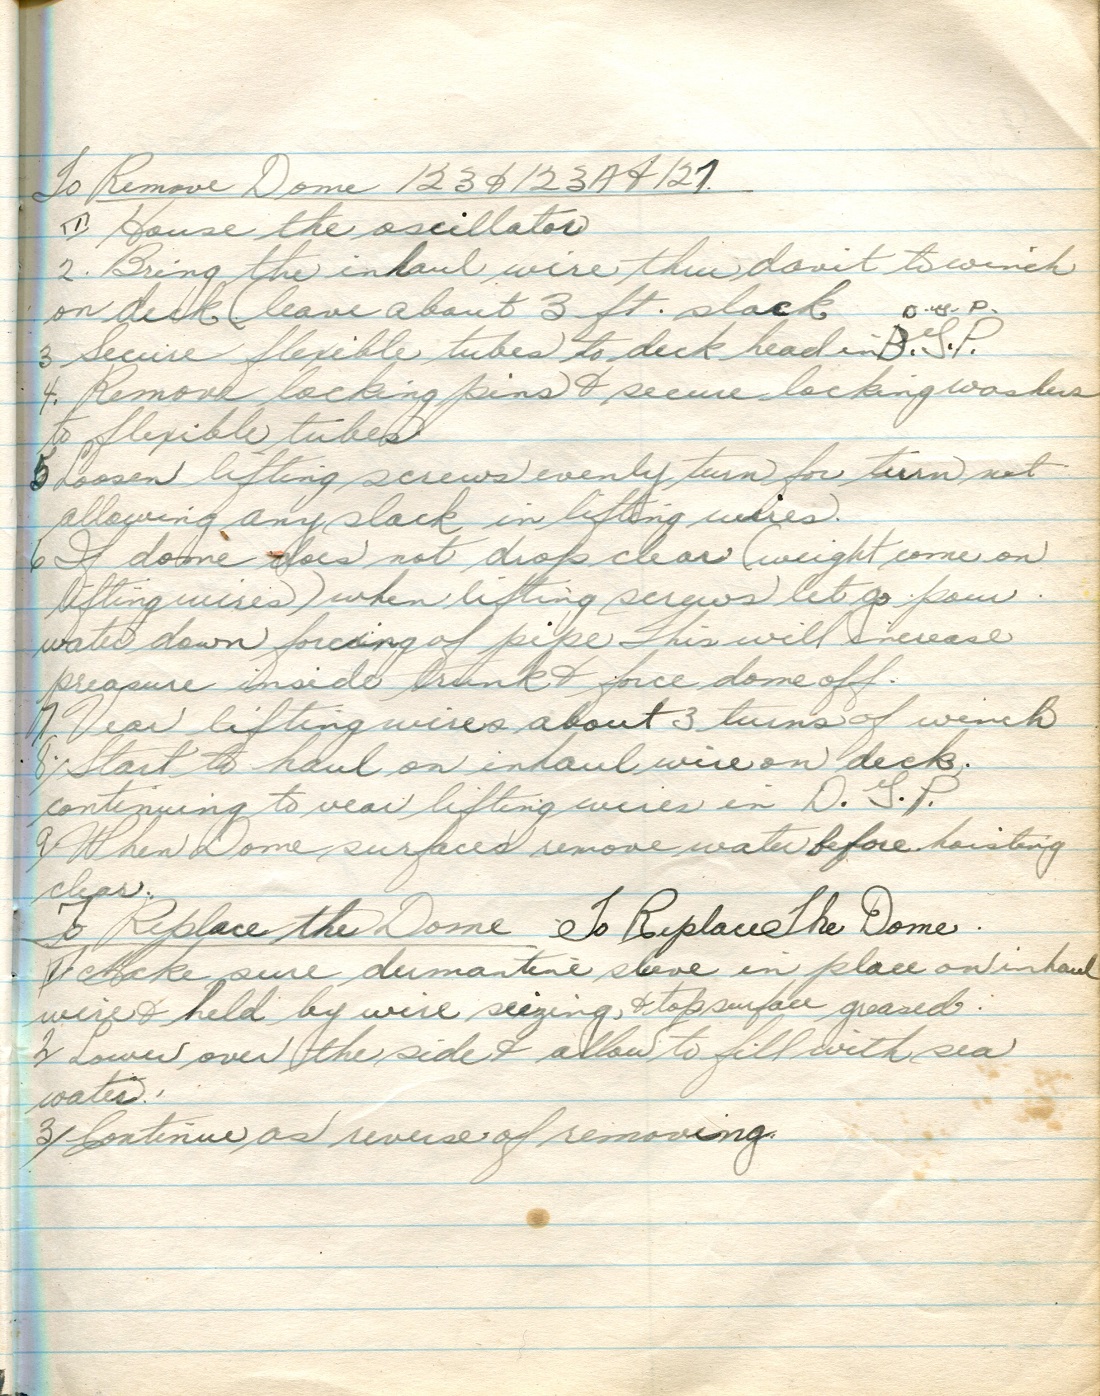 To Remove Dome 123 & 123A & 127.
1) House the oscillator
2. Bring the inhaul wire thru davit to winch
on deck (leave about 3 ft. slack
D. G. P.
3 Secure flexible tubes to deck head in D.G.P.
4. Remove locking pins & secure locking washers
to flexible tubes
5 Loosen lifting screws evenly turn for turn not
allowing any slack in lifting wires.
6 If dome does not drop clear (weight come on
lifting wires) when lifting screws let go pour
water down forcing of pipe This will increase
preasure inside trunk & force dome off.
7. Vear lifting wires about 3 turns of winch
8/ Start to haul on inhaul wire on deck.
continuing to vear lifting wires in D. G. P.
9/ When Dome surfaces remove water before hoisting
clear.
To Replace the Dome To Replace The Dome.
1/ Make sure dermantine sleve in place on inhaul
wire & held by wire seizing, & top surface greased.
2/ Lower over the side & allow to fill with sea
water.
3/ Continue as reverse of removing.